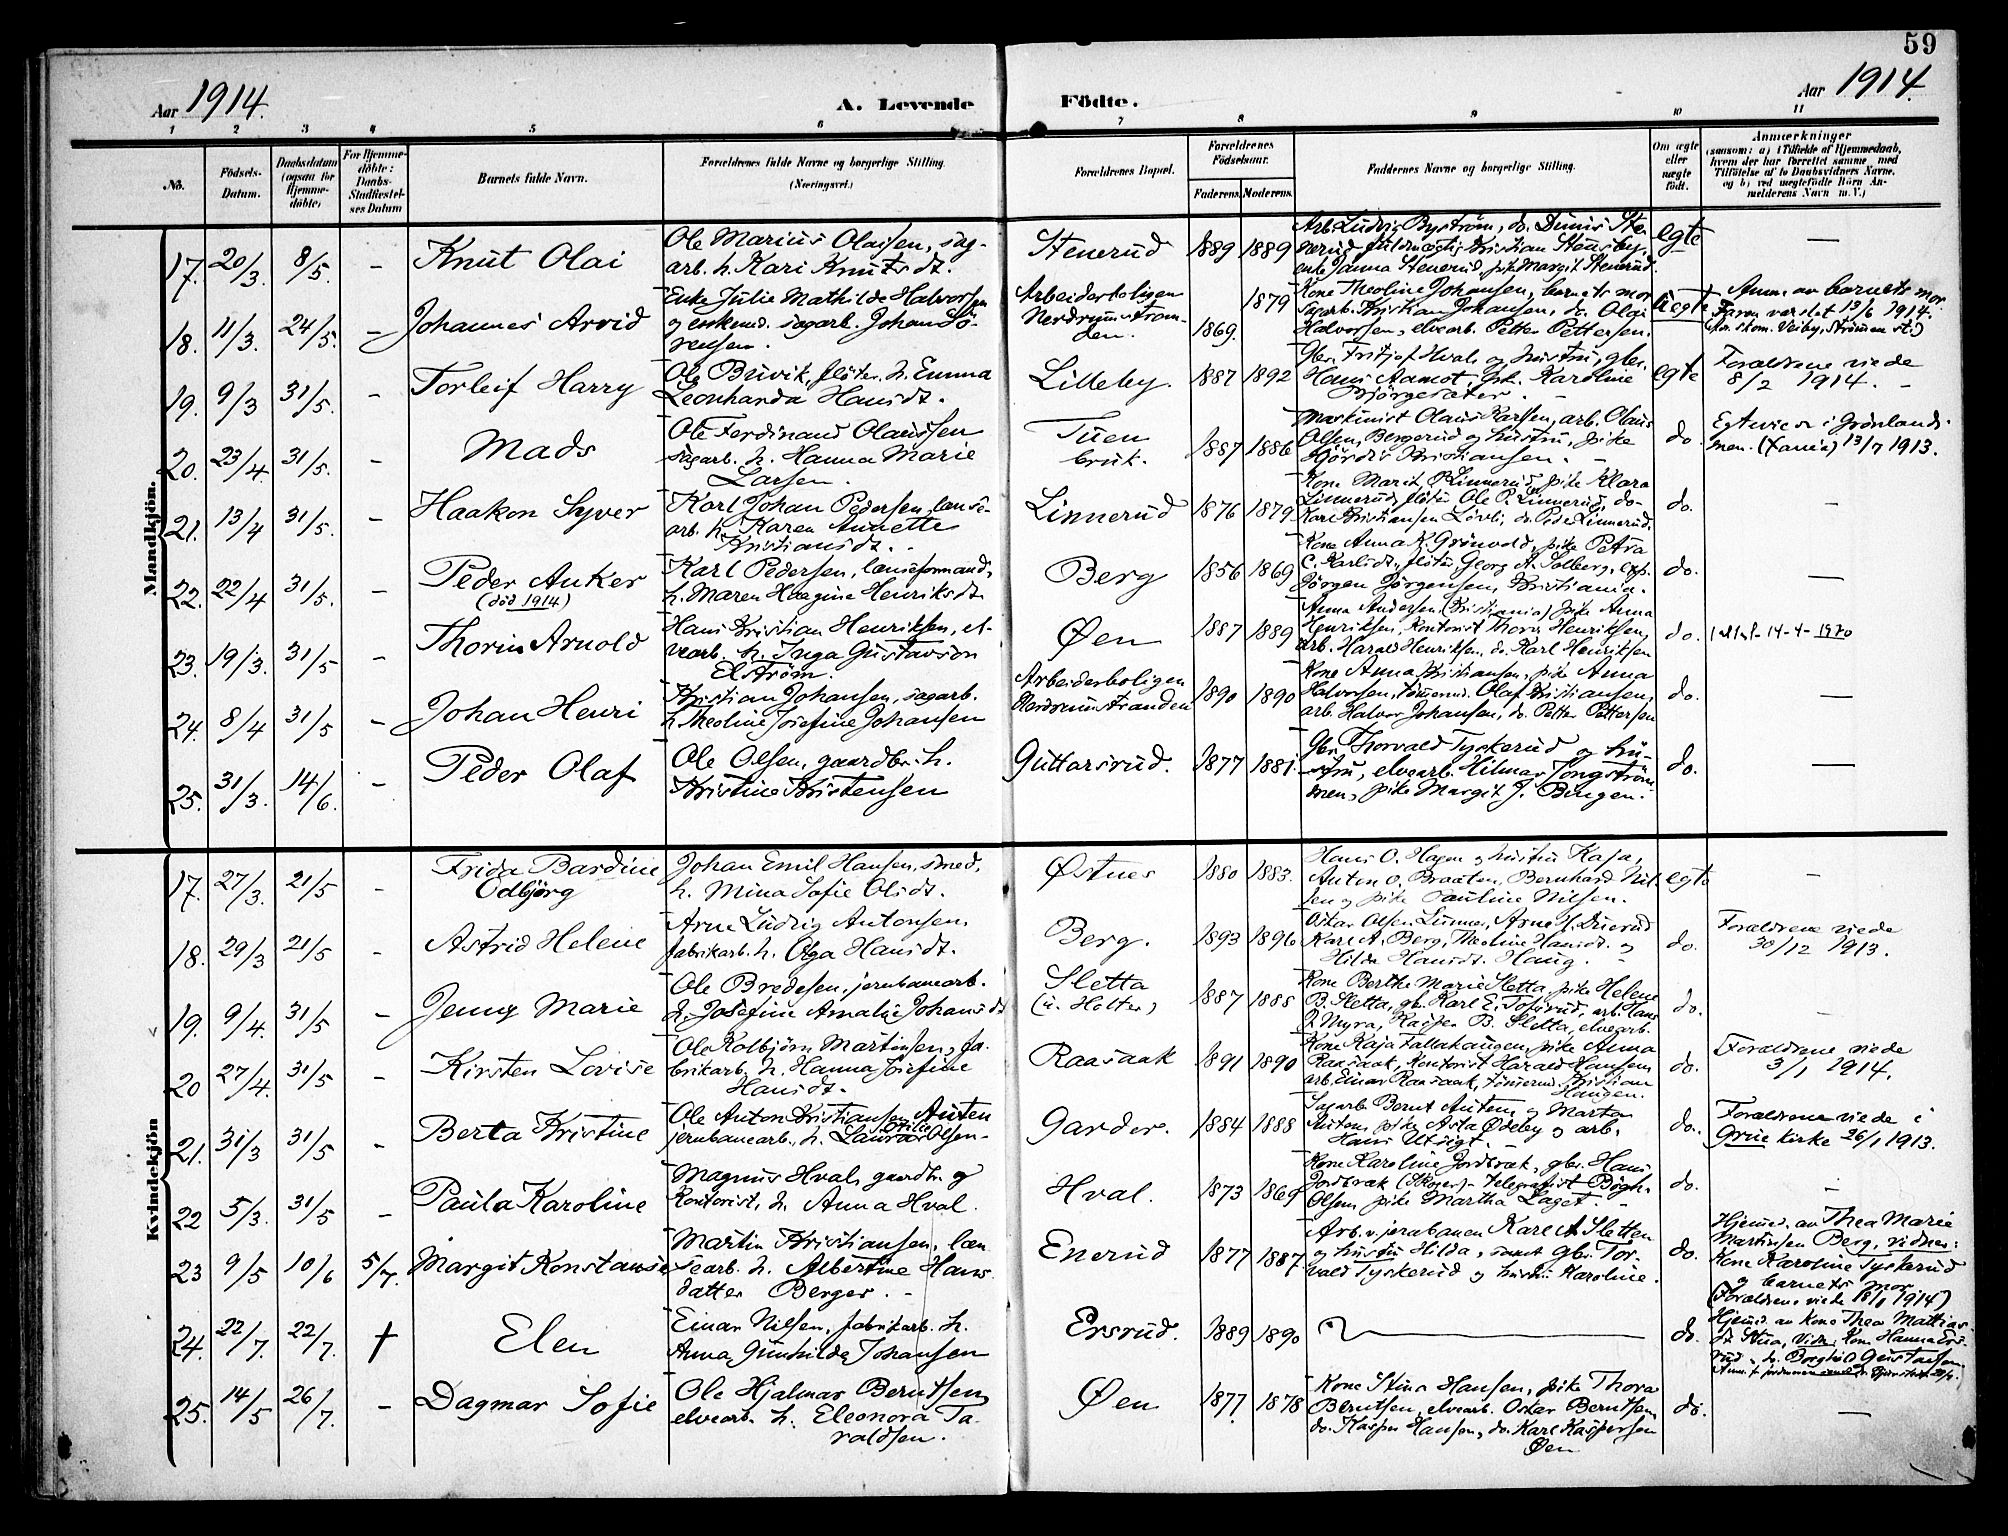 59
Aar 1914.
A. Levende Födte.
Aar 1914.
1 2 3 4 5 6 7 8 9 10 11
No.
Födsels-Datum.
Daabsdatum (ogsaa for Hjemme-döbte)
For Hjemme-döbte: Daabs-Stadfæstel-ses Datum
Barnets fulde Navn.
Forældrenes fulde Navne og borgerlige Stilling.
(Næringsvei.)
Forældrenes Bopæl.
Forældrenes Födselsaar.
Faderens. Moderens.
Faddernes Navne og borgerlige Stilling.
Om ægte eller uægte födt.
Anmærkninger
(saasom: a) i Tilfælde af Hjemmedaab, hvem der har forrettet samme, med Tilföielse af to Daabsvidners Navne, og b) ved uægtefödte Börn An-melderens Navn m. V.)
Mandkjön.
17. 20/3 8/5 - Knut Olai
Ole Marius Olaisen, sag-
arb. h. Kari Knutsdt.
Stenerud 1889 1889
Arb. Ludvig Byström, do. Dinus Ste-
nerud, fuldmægtig Kristian Staasby,
enke Janna Stenerud, pike Margit Stenerud.
egte —
18. 11/3. 24/5. - Johannes Arvid
Enke Julie Mathilde Halvorsen
og enkemd. sagarb. Johan Sö-
rensen.
Arbeiderboligen
Nerdrumstran-
den. 1869. 1879
Kone Theoline Johansen, barnets mor
Sagarb. Kristian Johansen, do. Olai
Halvorsen, elvearb. Petter Pettersen.
uegte
Anm. av barnets mor.
Faren varslet 13/6 1914.
19. 9/3 31/5. - Torleif Harry
Ole Buvik, flöter, h. Emma
Leonharda Hansdt.
Lilleby. 1887 1892
Gbr. Fritjof Hval og hustru, gbr.
Hans Aamot, pk. Karoline
Björgesæter. -
egte
Forældrene viede
8/2 1914. -
20. 23/4. 31/5. - Mads
Ole Ferdinand Olaussen
sagarb. h. Hanna Marie
Larsen.
Tuen
bruk. 1887 1886
Maskinist Olaus Karlsen, arb. Olaus
Olsen, Bergerud og hustru, pike
Hjördis Kristiansen. -
do.
Egteviede i Grönlands-
men. (Xania) 13/7 1913.
21. 13/4 31/5. - Haakon Syver
Karl Johan Pedersen, lænse-
arb. h. Karen Annette
Kristiansdt. -
Linnerud 1876 1879
Kone Marit P. Linnerud, pike Klara
Linnerud, flöter Ole P. Linnerud, do.
Karl Kristiansen Lövli, do. Peder Linnerud.
do. —
22. 22/4 31/5. - Peder Anker
(död 1914)
Karl Pedersen, lænseformand,
h. Maren Haagine Henriksdt.
Berg 1856 1869
Kone Anna K. Grönvold, pike Petra
C. Karlsdt., flöter Georg A. Solberg, exp.
Jörgen Jörgensen, Kristiania.
do. —
23. 19/3. 31/5 - Thorin Arnold
Hans Kristian Henriksen, el-
vearb. h. Inga Gustavson
Elström.
Øen 1887 1889
Anna Andersen (Kristiania) pike Anna
Henriksen, kontorist Thora Henriksen,
arb. Harald Henriksen, do. Karl Henriksen
do. 14-4-1970
24. 8/4 31/5 - Johan Henri
Kristian Johansen, sagarb.
h. Theoline Josefine Johansen
Arbeiderboligen
Nerdrumstranden 1890 1890
Kone Anna Kristiansen, pike Anna
Halvorsen, tömmermd. Olaf Kristiansen,
arb. Halvor Johansen, do. Petter Pettersen
do. —
25. 31/3. 14/6. - Peder Olaf
Ole Olsen, gaardbr. h.
Kristine Kristensen
Guttorsrud. 1877 1881
Gbr. Thorvald Tyskerud og hu-
stru, elvearb. Hilmar Tongström-
men, pike Margit J. Bingen.
do. —
Kvindekjön
17. 27/3. 21/5 - Frida Bardine
Odbjörg
Johan Emil Hansen, smed,
h. Mina Sofie Olsdt.
Østnes 1880 1883.
Hans O. Hagen og hustru Kaja,
Anton O. Braaten, Bernhard Nil-
sen og pike Pauline Nilsen.
egte -
18. 29/3 21/5 - Astrid Helene
Arne Ludvig Antonsen
fabrikarb. h. Olga Hansdt.
Berg. 1893 1896
Oskar Olsen Linnes, Arne J. Duerud
Karl A. Berg, Theoline Hansdt. og
Hilda Hansdt. Haug. -
do.
Forældrene viede
30/12 1913.
19. 9/4. 31/5 - Jenny Marie
Ole Bredesen, jernbanearb.
h. Josefine Amalie Johansdt
Sletta
(u. Holter) 1887 1888
Kone Berthe Marie Sletta, pike Helene
B. Sletta, gb. Karl E. Tofsrud, arb. Hans
P. Myra, Kasper B. Sletta, elvearb.
do. -
20 27/4. 31/5 - Kirsten Lovise
Ole Kolbjörn Martinsen, fa-
brikarb. h. Hanna Josefine
Hansdt.
Raasaak 1891 1890
Kone Kaja Fallahaugen, pike Anna
Raasaak, kontorist Harald Hansen
arb. Einar Raasaak, tömmermd. Kristian
Haugen.
do.
Forældrene viede
3/1 1914.
21. 31/3 31/5 - Berta Kristine
Ole Anton Kristiansen Auten
jernbanearb., h. Laura Otilie Olsen-
Garder. 1884 1888
Sagarb. Bernt Auten og Marta
Auten, pike Asta Ødeby og arb.
Hans Utsigt. -
do.
Forældrene viede i
Grue kirke 26/1 1913.
22 5/3. 31/5 - Paula Karoline
Magnus Hval, gaardbr. og
kontorist, h. Anna Hval.
Hval. 1873 1869
Kone Karoline Jordbræk, gbr. Hans
Jordbræk (Skoger) - telegrafist Bögh-
Olsen, pike Martha Laget. -
do. -
23 9/5 10/6 5/7. Margit Konstanse
Martin Kristiansen, læn-
searb. h. Albertine Hans-
datter Berger. -
Enerud 1877 1887.
Arb. v. jernbanen Karl A. Sletten
og hustru Hilda, samt gbr. Tor-
vald Tyskerud og hustru Karoline.
do.
Hjemd. av Thea Marie
Martinsen Berg, vidner:
Kone Karoline Tyskerud
og barnets mor
(Forældrene viede 18/1 1914)
24. 22/7. 22/7. † Elen
Einar Nilsen, fabrikarb. h.
Anna Gunhilda Johansen
Ersrud. 1889 1890
do.
Hjemd. av kone Thea Mathias-
dt Stua, Vidn: Kone Hanna Ers-
rud, do. Borghild Gustavsen
25. 14/5 26/7. - Dagmar Sofie
Ole Hjalmar Berntsen
elvearb. h. Eleonora Ta-
raldsen.
Øen 1877 1878
Kone Stina Hansen, pike Thora
Berntsen, elvearb. Oskar Berntsen,
do. Kasper Hansen, do. Karl Kaspersen
Øen
do. —